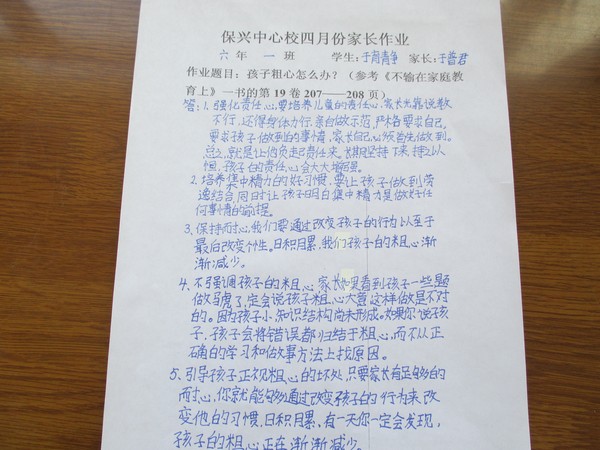 保兴中心校四月份家长作业
六 年 一 班 学生：于甯靖争 家长：于普君
作业题目：孩子粗心怎么办？（参考《不输在家庭教
育上》一书的第 19 卷 207——208 页）
答：1.强化责任心，要培养儿童的责任心，家长光靠说教
不行，还得身体力行，亲自做示范，严格要求自己。
要求孩子做到的事情，家长自己必须首先做到。
总之，就是让他负起责任来，长期坚持下来，持之以
恒，孩子的责任心会大大增强。
2.培养集中精力的好习惯，要让孩子做到劳
逸结合，同时让孩子明白集中精力是做好任
何事情的前提。
3、保持耐心，我们要通过改变孩子的行为以至于
最后改变个性。日积月累，我们孩子的粗心渐
渐减少。
4、不强调孩子的粗心，家长如果看到孩子一些题
做马虎了，定会说孩子粗心大意，这样做是不对
的。因为孩子小，知识结构尚未形成。如果你说孩
子，孩子会将错误都归结于粗心，而不从正
确的学习和做事方法上找原因。
5、引导孩子正视粗心的坏处，只要家长有足够的
耐心，你就能够通过改变孩子的行为来改
变他的习惯，日积月累，有一天你一定会发现，
孩子的粗心正在渐渐减少。